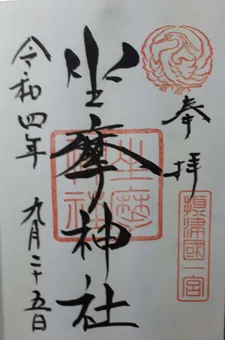 奉拝
攝津國一宮
坐摩神社
令和四年
九月二十五日